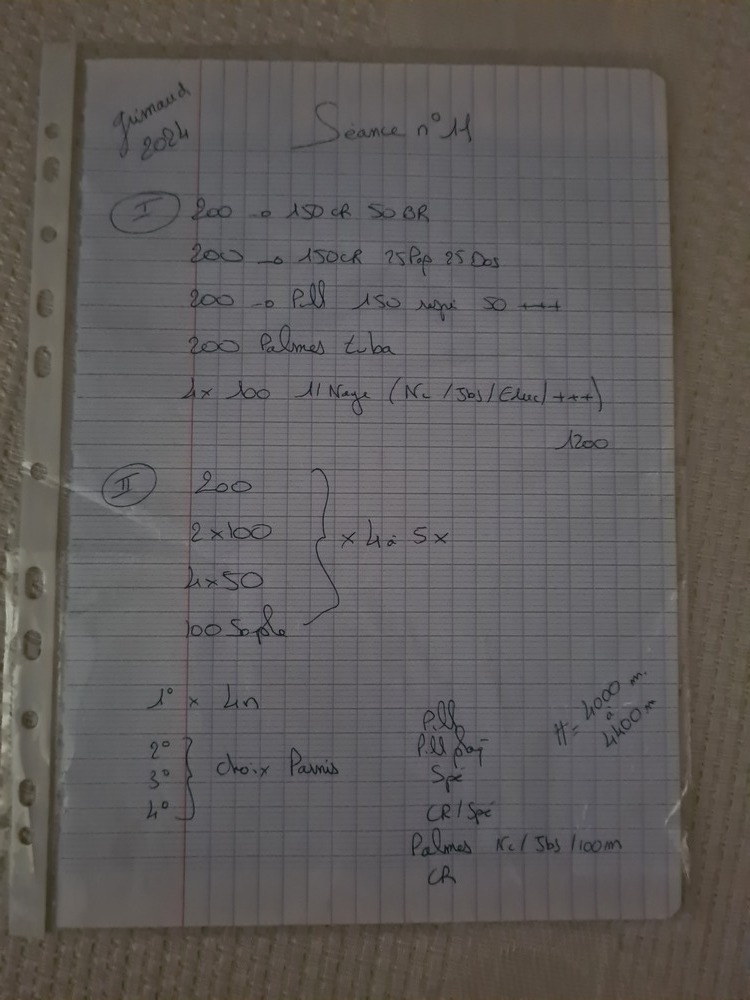 Grimaud
2024
Séance n°11
I 200 → 150 CR 50 BR
200 → 150CR 25 Pap 25 Dos
200 → Pull 150 respi 50 +++
200 Palmes tuba
4x 100 1/Nage (Nc / Jbs / Educ / +++)
1200
II 200
2x100
4x50
100 Souple
x 4 à 5x
1° x 4n
2°
3° choix Parmis
4°
Pull
Pull plaq
Spé
CR / Spé
Palmes Nc / Jbs / 100m
CR
= 4000 m.
à
4400 m